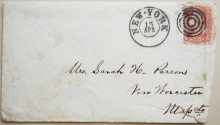 NEW-YORK
15
APR
Mrs. Sarah H. Parsons
New Worcester
Mass